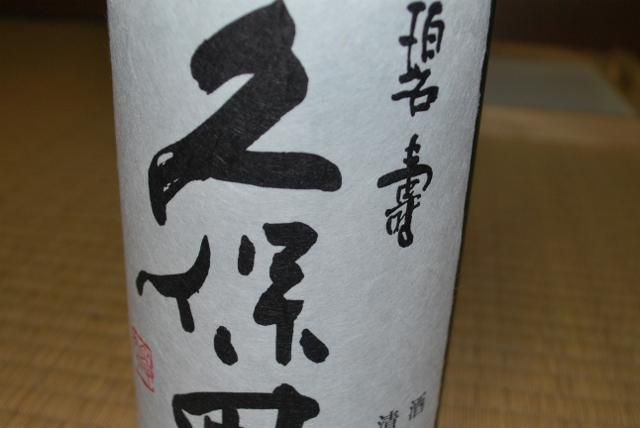 碧壽
久保田
清酒